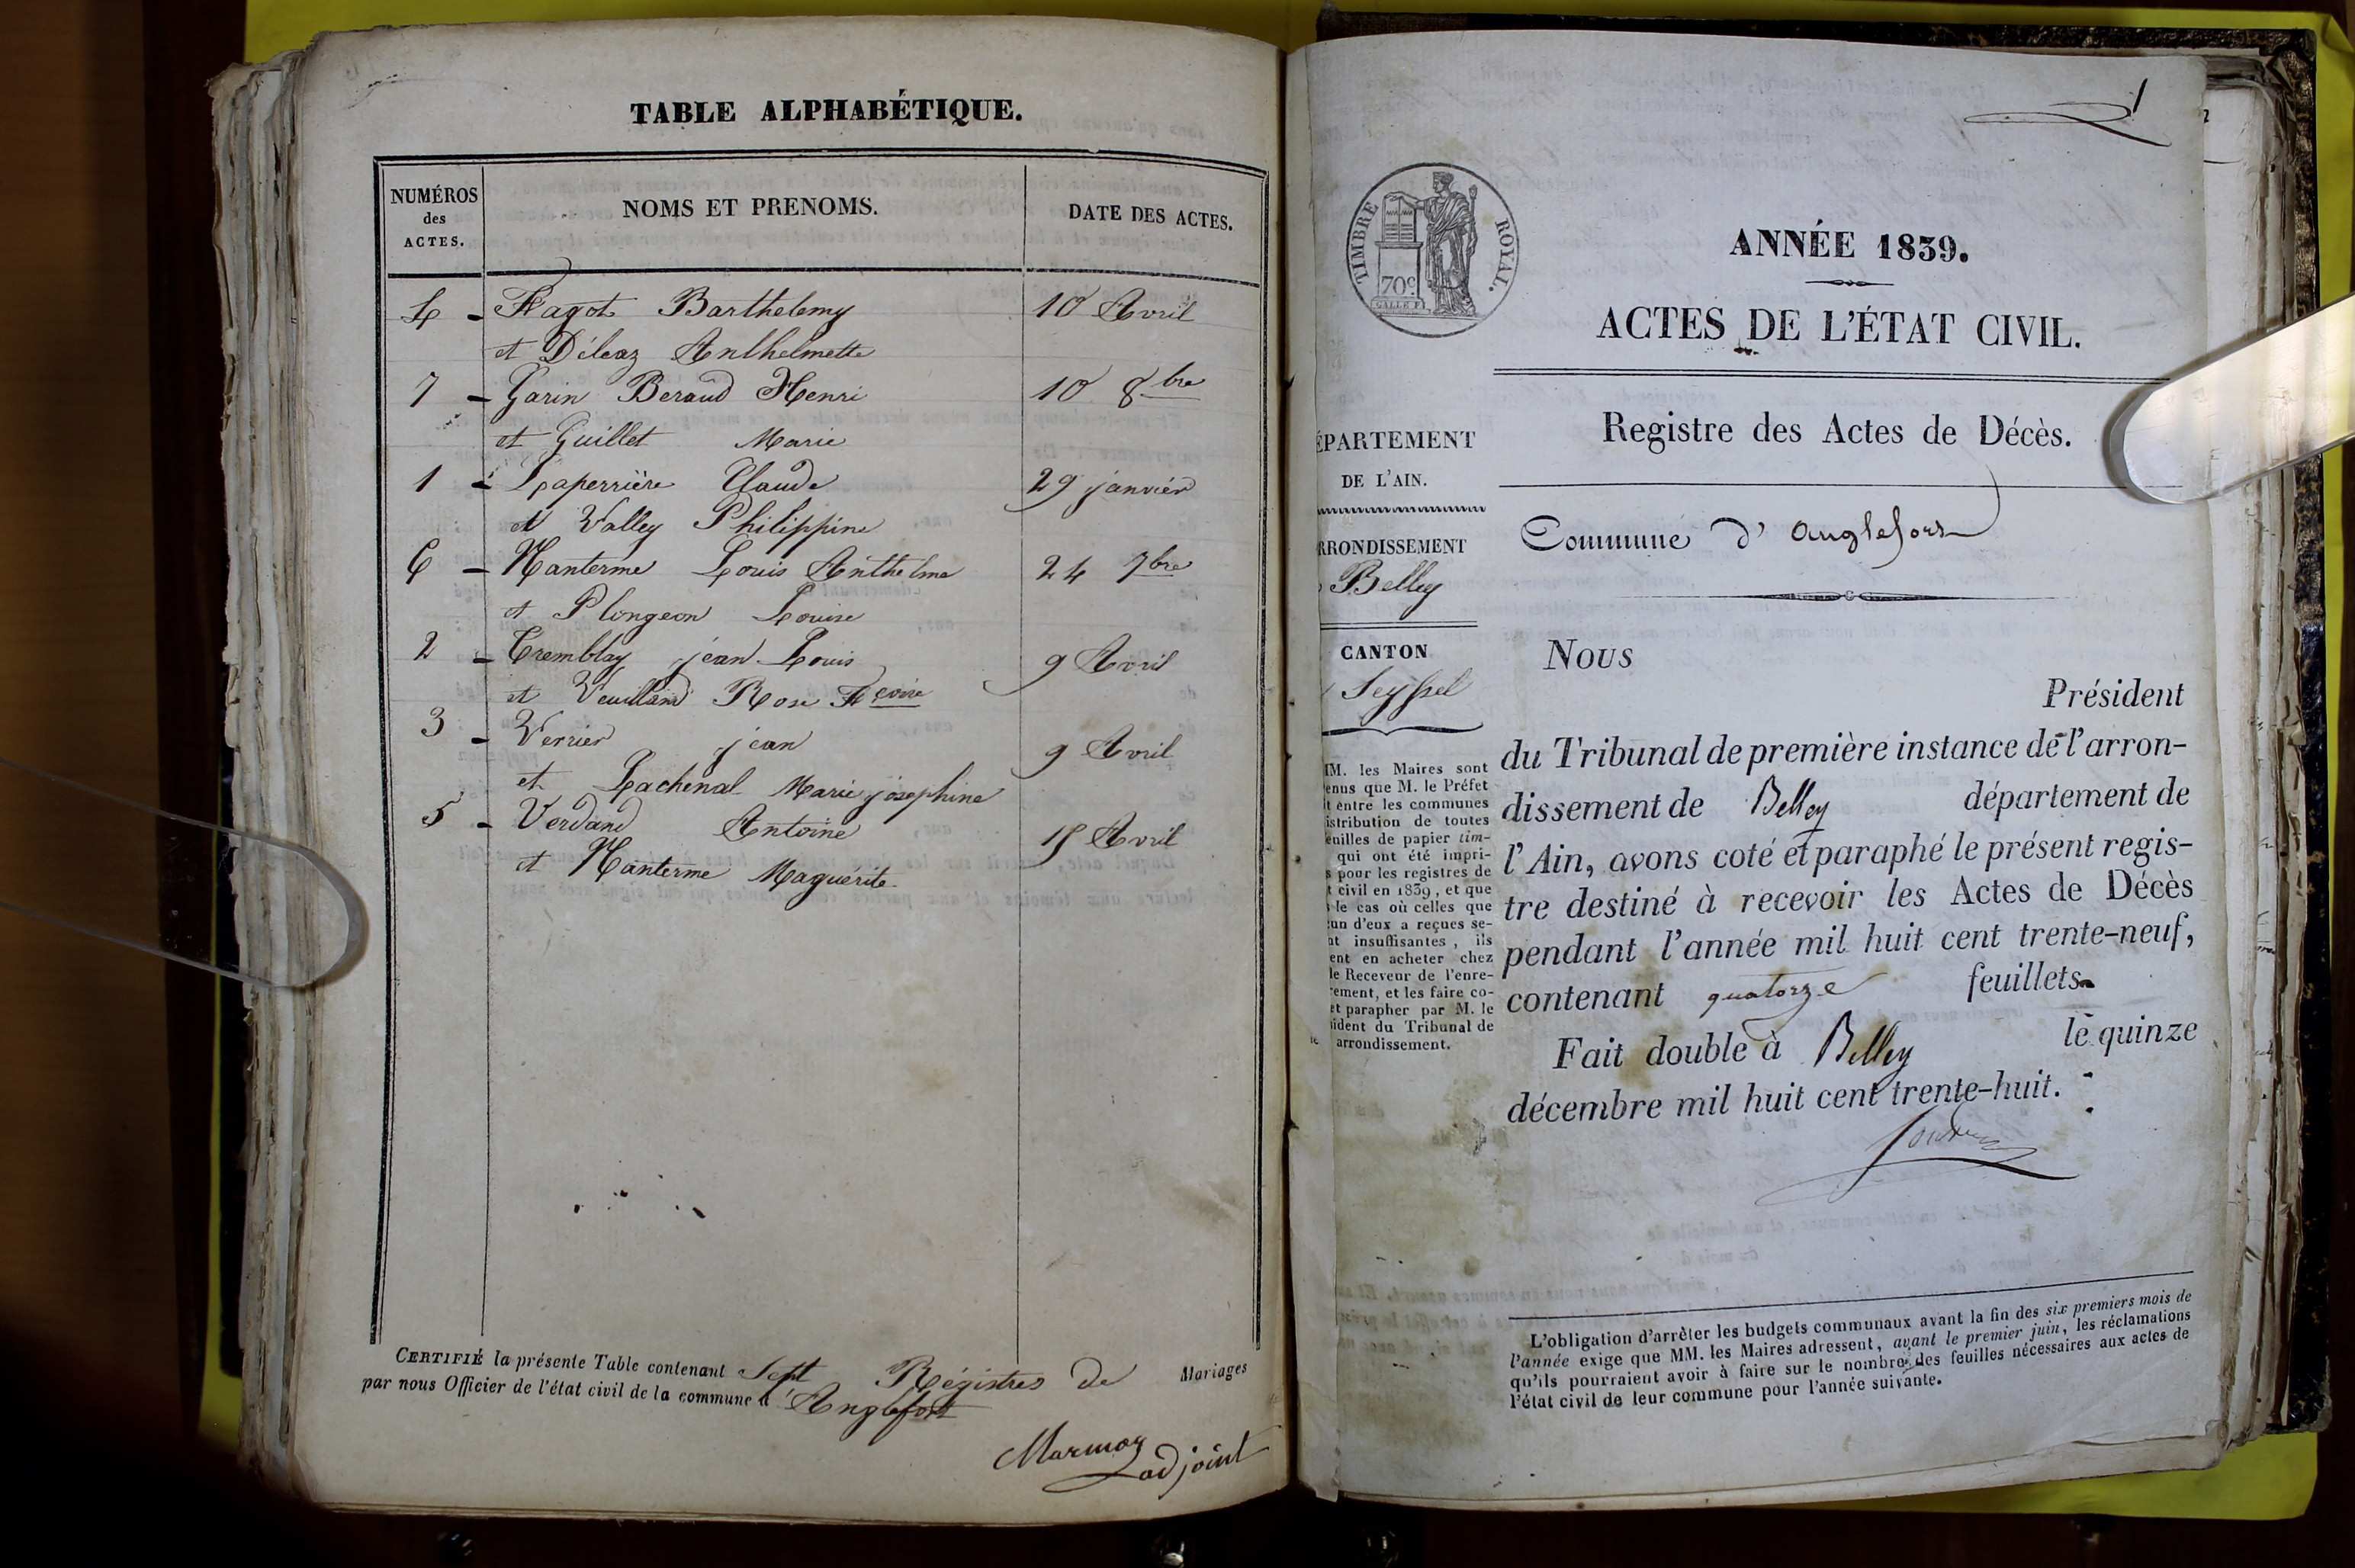 TABLE ALPHABÉTIQUE.
NUMÉROS
des
ACTES.
NOMS ET PRENOMS.
DATE DES ACTES.
4 - Fagot Barthelemy 10 Avril
et Déleaz Anthelmette
7 - Garin Beraud Henri 10 8bre
et Guillet Marie
1 - Laperrière Claude 29 janvier
et Valley Philippine
6 - Nanterme Louis Anthelme 24 7bre
et Plongeon Louise
2 - Tremblay jean Louis 9 Avril
et Veuilland Rose Fçoise
3 - Verrier jean 9 Avril
et Lachenal Marie josephine
5 - Verdand Antoine Avril
et Nanterme Maguérite
CERTIFIÉ la présente Table contenant Sept Régistres de Mariages
par nous Officier de l'état civil de la commune d'Anglefort
Marmoz
adjoint
1
TIMBRE ROYAL.
70c
GALLE F.
ANNÉE 1839.
ACTES DE L'ÉTAT CIVIL.
Registre des Actes de Décès.
ÉPARTEMENT
DE L'AIN.
RRONDISSEMENT
Belley
CANTON
Seyssel
M. les Maires sont
enus que M. le Préfet
t entre les communes
istribution de toutes
euilles de papier tim-
qui ont été impri-
s pour les registres de
t civil en 1839, et que
le cas où celles que
un d'eux a reçues se-
nt insuffisantes, ils
ent en acheter chez
le Receveur de l'enre-
ement, et les faire co-
et parapher par M. le
ident du Tribunal de
arrondissement.
Commune d'anglefort
Nous
Président
du Tribunal de première instance de l'arron-
dissement de Belley département de
l'Ain, avons coté et paraphé le présent regis-
tre destiné à recevoir les Actes de Décès
pendant l'année mil huit cent trente-neuf,
contenant quatorze feuillets.
Fait double à Belley le quinze
décembre mil huit cent trente-huit.
L'obligation d'arrêter les budgets communaux avant la fin des six premiers mois de
l'année exige que MM. les Maires adressent, avant le premier juin, les réclamations
qu'ils pourraient avoir à faire sur le nombre des feuilles nécessaires aux actes de
l'état civil de leur commune pour l'année suivante.